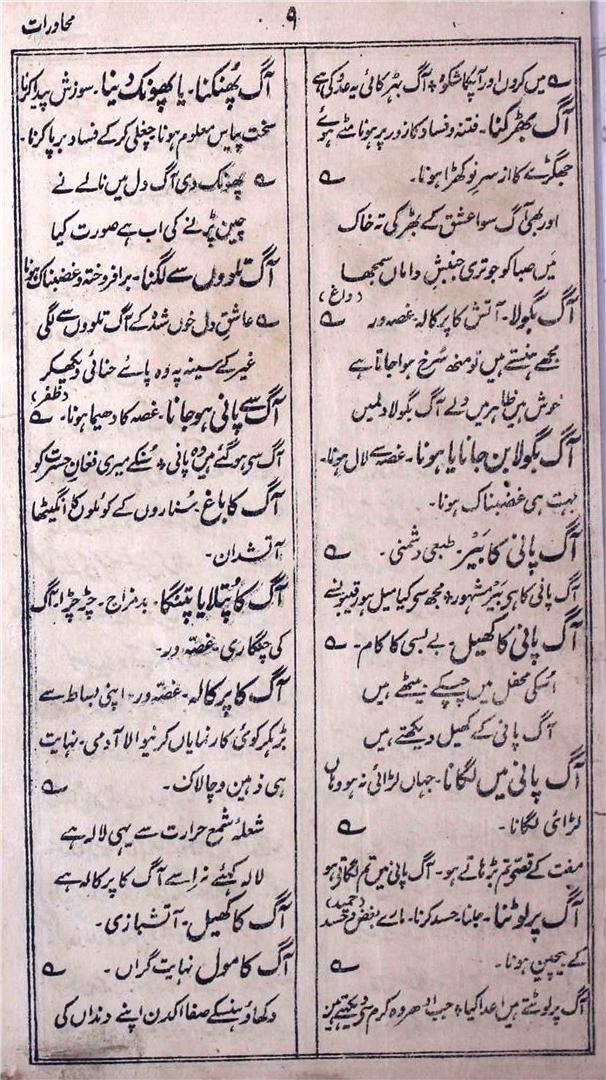 محاورات
۹
؎ میں کروں اور آپکا شکوہ ٭ آگ بھڑکائی یہ عدو کی ہے
آگ بھڑکنا۔ فتنہ و فساد کا زور پر ہونا مٹے ہوئے
جھگڑے کا از سرِ نو کھڑا ہونا۔ ؎
اور بھی آگ سوا عشق کے بھڑگی تہ خاک
میں صبا کو جو تری جنبشِ داماں سمجھا
(داغ)
آگ بگولا۔ آتش کا پرکالہ۔ غصہ ور ؎
مجھے ہنستے ہیں تو منھ سُرخ ہوا جاتا ہے
خوش ہیں ظاہر میں ولے آگ بگولا دلمیں
آگ بگولا بن جانا یا ہونا۔ غصہ سے لال ہونا۔
بہت ہی غضبناک ہونا۔
آگ پانی کا بَیر۔ طبعی دشمنی۔ ؎
آگ پانی کا ہی بَیر مشہور ٭ مجھسے کیا میل ہو رقیبونسے
آگ پانی کا کھیل۔ بے بسی کا کام۔ ؎
اُسکی محفل میں چپکے بیٹھے ہیں
آگ پانی کے کھیل دیکھتے ہیں
آگ پانی میں لگانا۔ جہاں لڑائی نہ ہو وہاں
لڑائی لگانا۔ ؎
مفت کے قصے تم بڑہاتے ہو۔ آگ پانی میں تم لگاتی ہو
(حمید)
آگ پر لوٹنا۔ جلنا۔ حسد کرنا۔ مارے بغض و حسد
کے بیچین ہونا۔ ؎
آگ پر لوٹتے ہیں اعدا کیا ٭ جب ادھر وہ کرم سی دیکھتے ہیں
آگ پُھنکنا۔ یا پھونک دینا۔ سوزش پیدا کرنا
سخت پیاس معلوم ہونا چغلی کر کے فساد برپا کرنا۔
؎ پھونک دی آگ دل میں نالے نے
چین پڑنے کی اب ہے صورت کیا
آگ تلووں سے لگنا۔ برافروختہ و غضبناک ہونا
؎ عاشق دل خوں شدُ کے آگ تلووں سے لگی
غیر کے سینہ پہ وہ پائے حنائی دیکھکر
(ظفر)
آگ سے پانی ہو جانا۔ غصہ کا دھیما ہونا۔ ؎
آگ سی ہو گئے ہیں وہ پانی ٭ سُنکے میری فغانِ حسرت کو
آگ کا باغ۔ سُناروں کے کوئلوں کا انگیٹھا
آتشدان۔
آگ کا پُتلا یا پتنگا۔ بدمزاج۔ چڑچڑا۔ آگ
کی چنگاری۔ غصّہ ور۔
آگ کا پرکالہ۔ غصّہ ور۔ اپنی بساط سے
بڑہکر کوئی کار نمایاں کرنیوالا آدمی۔ نہایت
ہی ذہین و چالاک۔ ؎
شعلۂ شمع حرارت سے یہی لالہ ہے
لالہ کہئے نہ اسے آگ کا پرکالہ ہے
آگ کا کھیل۔ آتشبازی۔
آگ کا مول نہایت گراں۔ ؎
دکھاؤ ہنسکے صفا اکدن اپنے دنداں کی